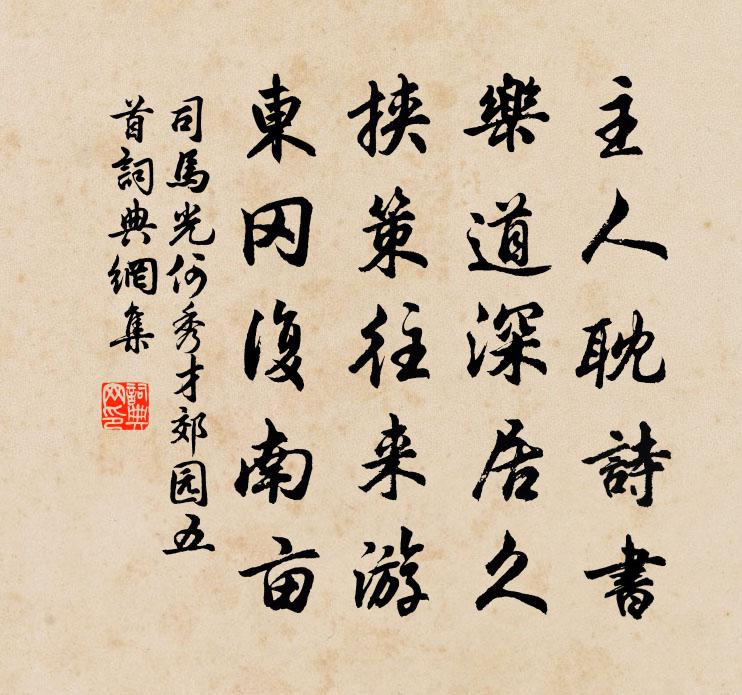 主人耽詩書
樂道深居久
挾策往来游
東冈復南亩
司馬光何秀才郊园五
首詞典網集
詞典網印